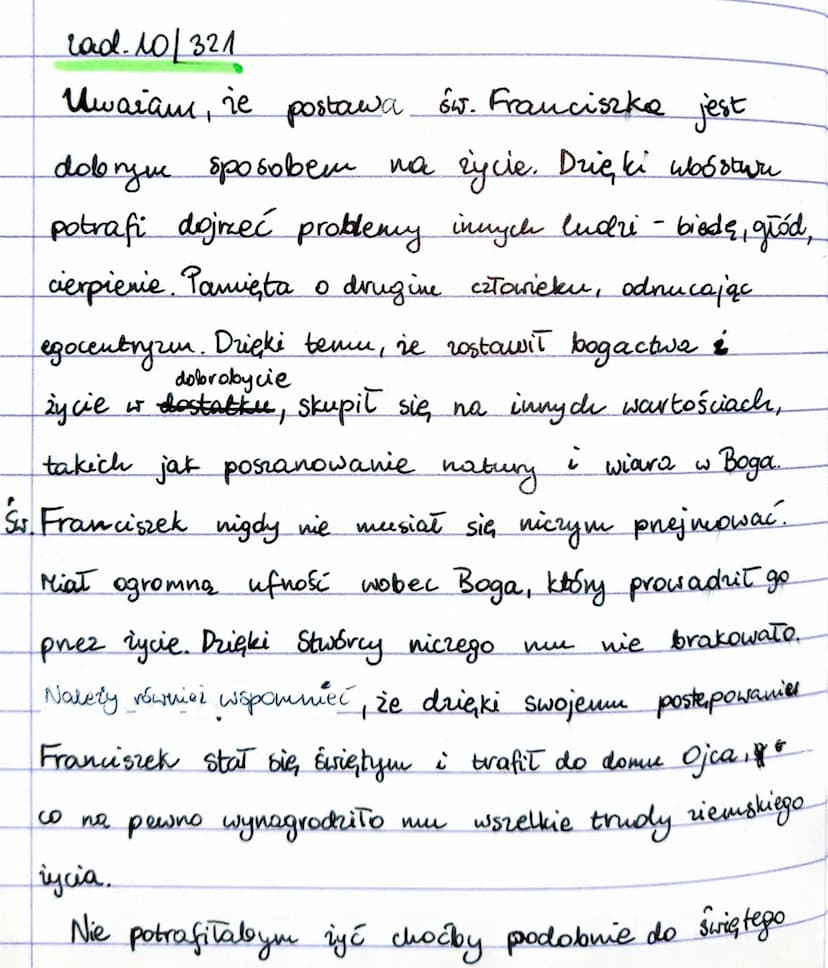 zad. 10/321
Uważam, że postawa św. Franciszka jest
dobrym sposobem na życie. Dzięki ubóstwu
potrafi dojrzeć problemy innych ludzi - biedę, głód,
cierpienie. Pamięta o drugim człowieku, odrzucając
egocentryzm. Dzięki temu, że zostawił bogactwa i
dobrobycie
życie w dostatku, skupił się na innych wartościach,
takich jak poszanowanie natury i wiara w Boga.
Św. Franciszek nigdy nie musiał się niczym przejmować.
Miał ogromną ufność wobec Boga, który prowadził go
przez życie. Dzięki Stwórcy niczego mu nie brakowało.
Należy również wspomnieć, że dzięki swojemu postępowaniu
Franciszek stał się świętym i trafił do domu Ojca,
co na pewno wynagrodziło mu wszelkie trudy ziemskiego
życia.
Nie potrafiłabym żyć choćby podobnie do świętego